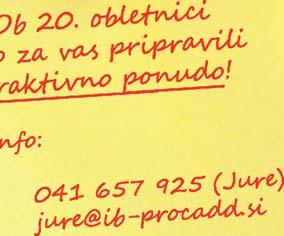 Ob 20. obletnici
za vas pripravili
ponudo!
041 657 925 (Jure)
jure@ib-procadd.si